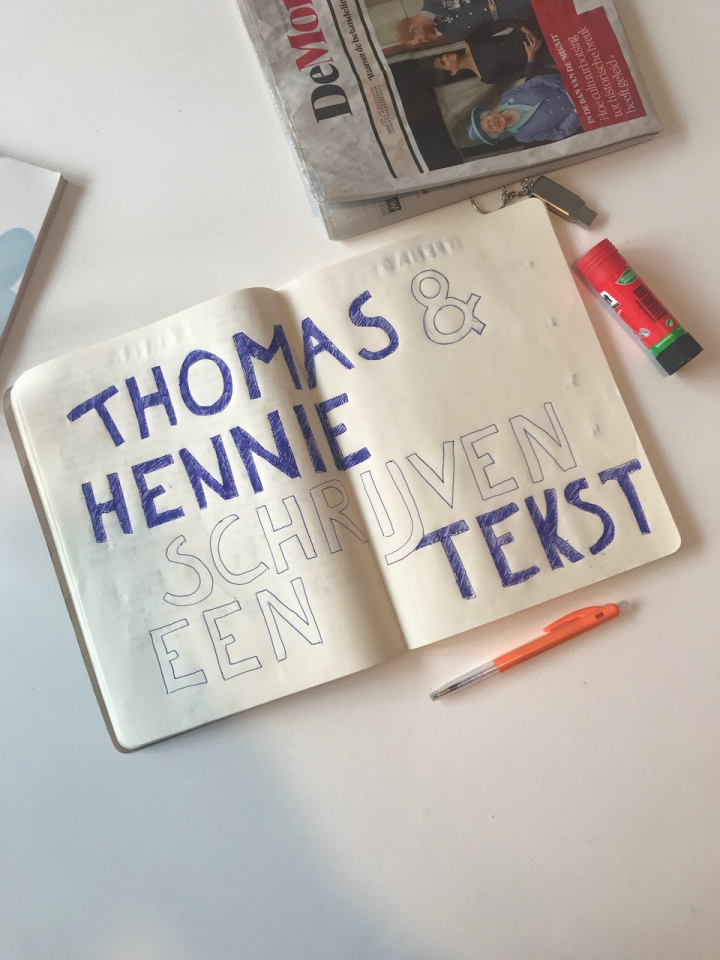 DeMor
IN DE BAN VAN DE MEGXIT
Hoe cultuurbotsing
tot historische break
heeft geleid.
THOMAS &
HENNIE
SCHRIJVEN
EEN TEKST